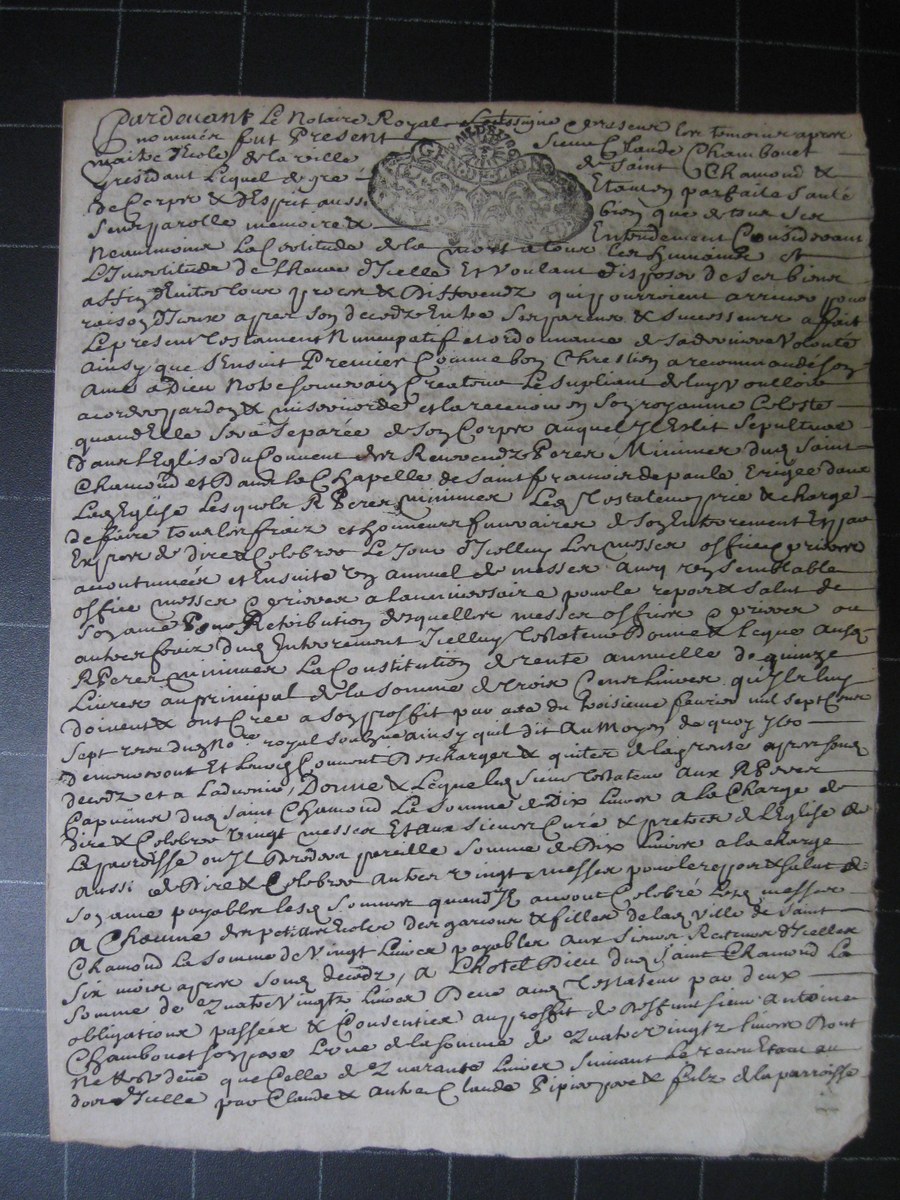 Pardevant Le Notaire Royal soussigné & presens les temoins apres
nommés fut Present Sieur Claude Chambouet
maitre d'Ecole de la ville de Saint Chamond &
y residant Lequel de gré Etant en parfaite santé
de Corps & d'Esprit aussi bien que de tous ses
sens parolle memoire & Entendement Considerant
neantmoins La Certitude de la mort a tous les humains et
L'Incertitude de l'heure d'Icelle Et Voulant disposer de ses biens
affin d'Eviter tous proces & Differendz qui pourroient arriver pour
raison d'Iceux apres son decedz Entre ses parens & successeurs a fait
Le present testament Nuncupatif et ordonnance de sa derniere Volonté
ainsy que s'Ensuit Premier Comme bon Chrestien a recommandé son
ame a Dieu Notre souverain Createur Le supliant de luy voulloir
acorder pardon & misericorde et la recevoir en son royaume Celeste
quand Elle sera separée de son Corps auquel Il Eslit sepulture
Dans l'Eglise du Couvent des Reverendz Peres Minimes dud Saint
Chamond et Dans la Chapelle de Saint françois de paule Erigée dans
Lad Eglise Lesquels RPeres minimes Led Testateur prie & charge
de faire tous les fraix et honneurs funeraires de son Enterrement
de dire & Celebrer Le Jour d'Icelluy Les messes offices & prieres
acoutumées et Ensuite un annuel de messes avec un semblable
office messes & prieres a l'anniversaire pour le repos & salut de
son ame Pour Retribution desquelles messes offices & prieres ou
autres fraix dud Enterrement Icelluy Testateur Donne & Legue ausd
RPeres minimes La Constitution de rente annuelle de quinze
Livres au principal de la somme de trois Cens livres qu'Ils luy
doivent & ont Creé a son proffit par acte du troisieme fevrier mil sept Cens
sept receu dud No.re royal soussigné ainsy quil dit Au Moyen de quoy Ils
demeureront Et Leurd Couvent Deschargés & quittes de la rente apres soud
decedz et a Ladvenir, Donne & Legue led Sieur Testateur aux RPeres
Capucins dud Saint Chamond La somme de Dix livres a la Charge de
dire & Celebrer Vingt messes Et aux sieurs Curé & pretres de l'Eglise de
La parroisse ou Il Decedera pareille somme de Dix livres a la charge
aussi de Dire & Celebrer autres vingt messes pour le repos & salut de
son ame payables lesd sommes quand Ils auront Celebré Lesd messes
A Chacune des petittes Ecoles des garçons & filles de lad ville de Saint
Chamond La somme de Vingt livres payables aux Sieurs Recteurs d'Icelles
six mois apres soud decedz, A L'hotel Dieu dud Saint Chamond La
somme de Quatre Vingtz livres Deue aud Testateur par deux
obligations passées & Consenties au proffit de deffunt sieur Antoine
Chambouet son pere L'une de la somme de Quatre vingtz livres Dont
que Celle de Quarante livres suivant Le receu Etant au
dos d'Icelle par Claude & autre Claude pere & filz de la parroisse